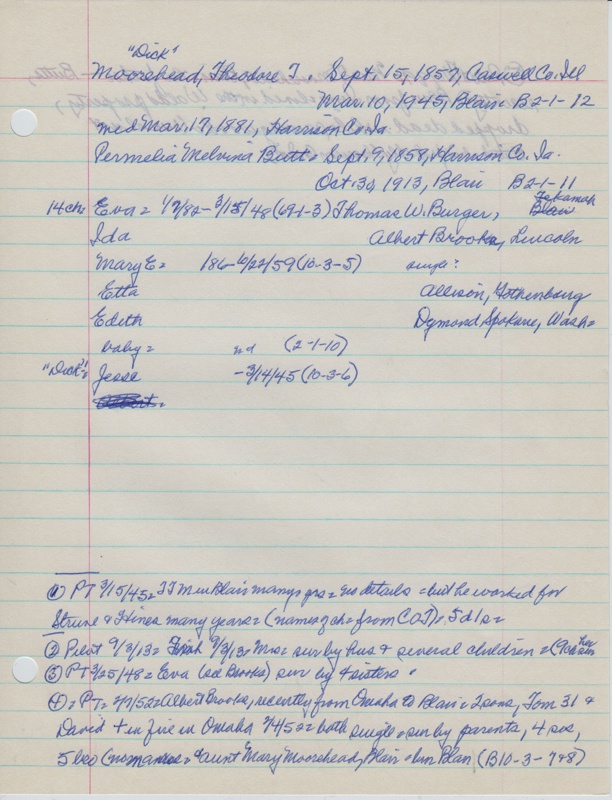 "Dick"
Moorehead, Theodore T. Sept. 15, 1857, Caswell Co. Ill
Mar. 10, 1945, Blair B2-1-12
med Mar. 17, 1881, Harrison Co. Ia.
Permelia Melvina Butt = Sept. 9, 1858, Harrison Co. Ia.
Oct. 30, 1913, Blair B2-1-11
Tekamah
14 ch: Eva = 1882 - 48 (69-1-3) Thomas W. Burger, Blair
Ida Albert Brooks, Lincoln
Mary E = 186 - 6/22/59 (10-3-5) single?
Etta Allison, Gothenburg
Edith Dymond Spokane, Wash =
baby = nd (2-1-10)
"Dick": Jesse - 3/14/45 (10-3-6)
① PT 3/15/45 = TTM Blair many yrs = no details = but he worked for
Struve & Hines many years = (names of ch = from COT) = 5 d ls =
② Pilot 9/3/13 = 9/3/13 = Mrs = sur by hus & several children =
③ PT 3/25/48 = Eva Brooks) sur by 4 sisters .
④ = PT = 52 = Albert Brooks, recently from Omaha to Blair = 2 sons, Tom 31 &
David + in fire in Omaha = both single = sur by parents, 4 sis,
5 bro (no names = & aunt Mary Moorehead, Blair = bur Blair (B10-3-7&8)